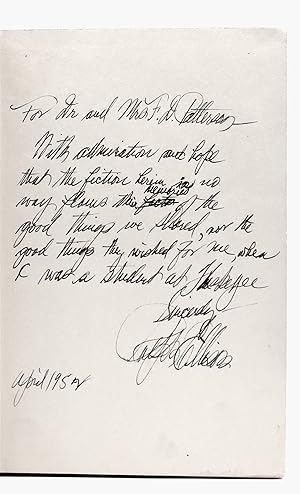 For Dr and Mrs. F. D. Patterson,
With admiration and hope
that the fiction herein in no
memories
way flaws the facts of the
good things we shared, nor the
good things they wished for me, when
I was a student at Tuskegee
Sincerely,
Ralph Ellison
April 1952